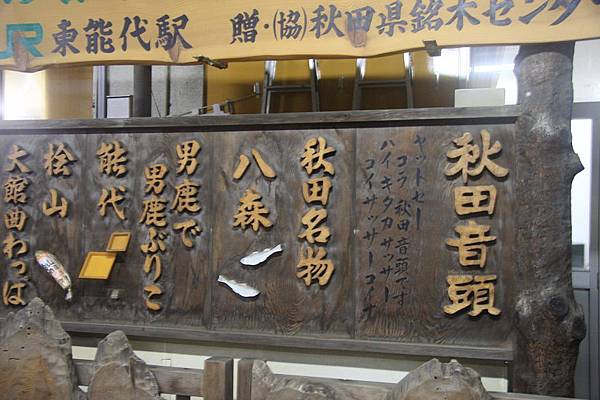 JR東能代駅 贈・(協)秋田県銘木センター
秋田音頭
ヤットセー
コラ秋田音頭です
ハイキタカサッサー
コイサッサーコイナ
秋田名物
八森
男鹿で
男鹿ぶりこ
能代
桧山
大館曲わっぱ